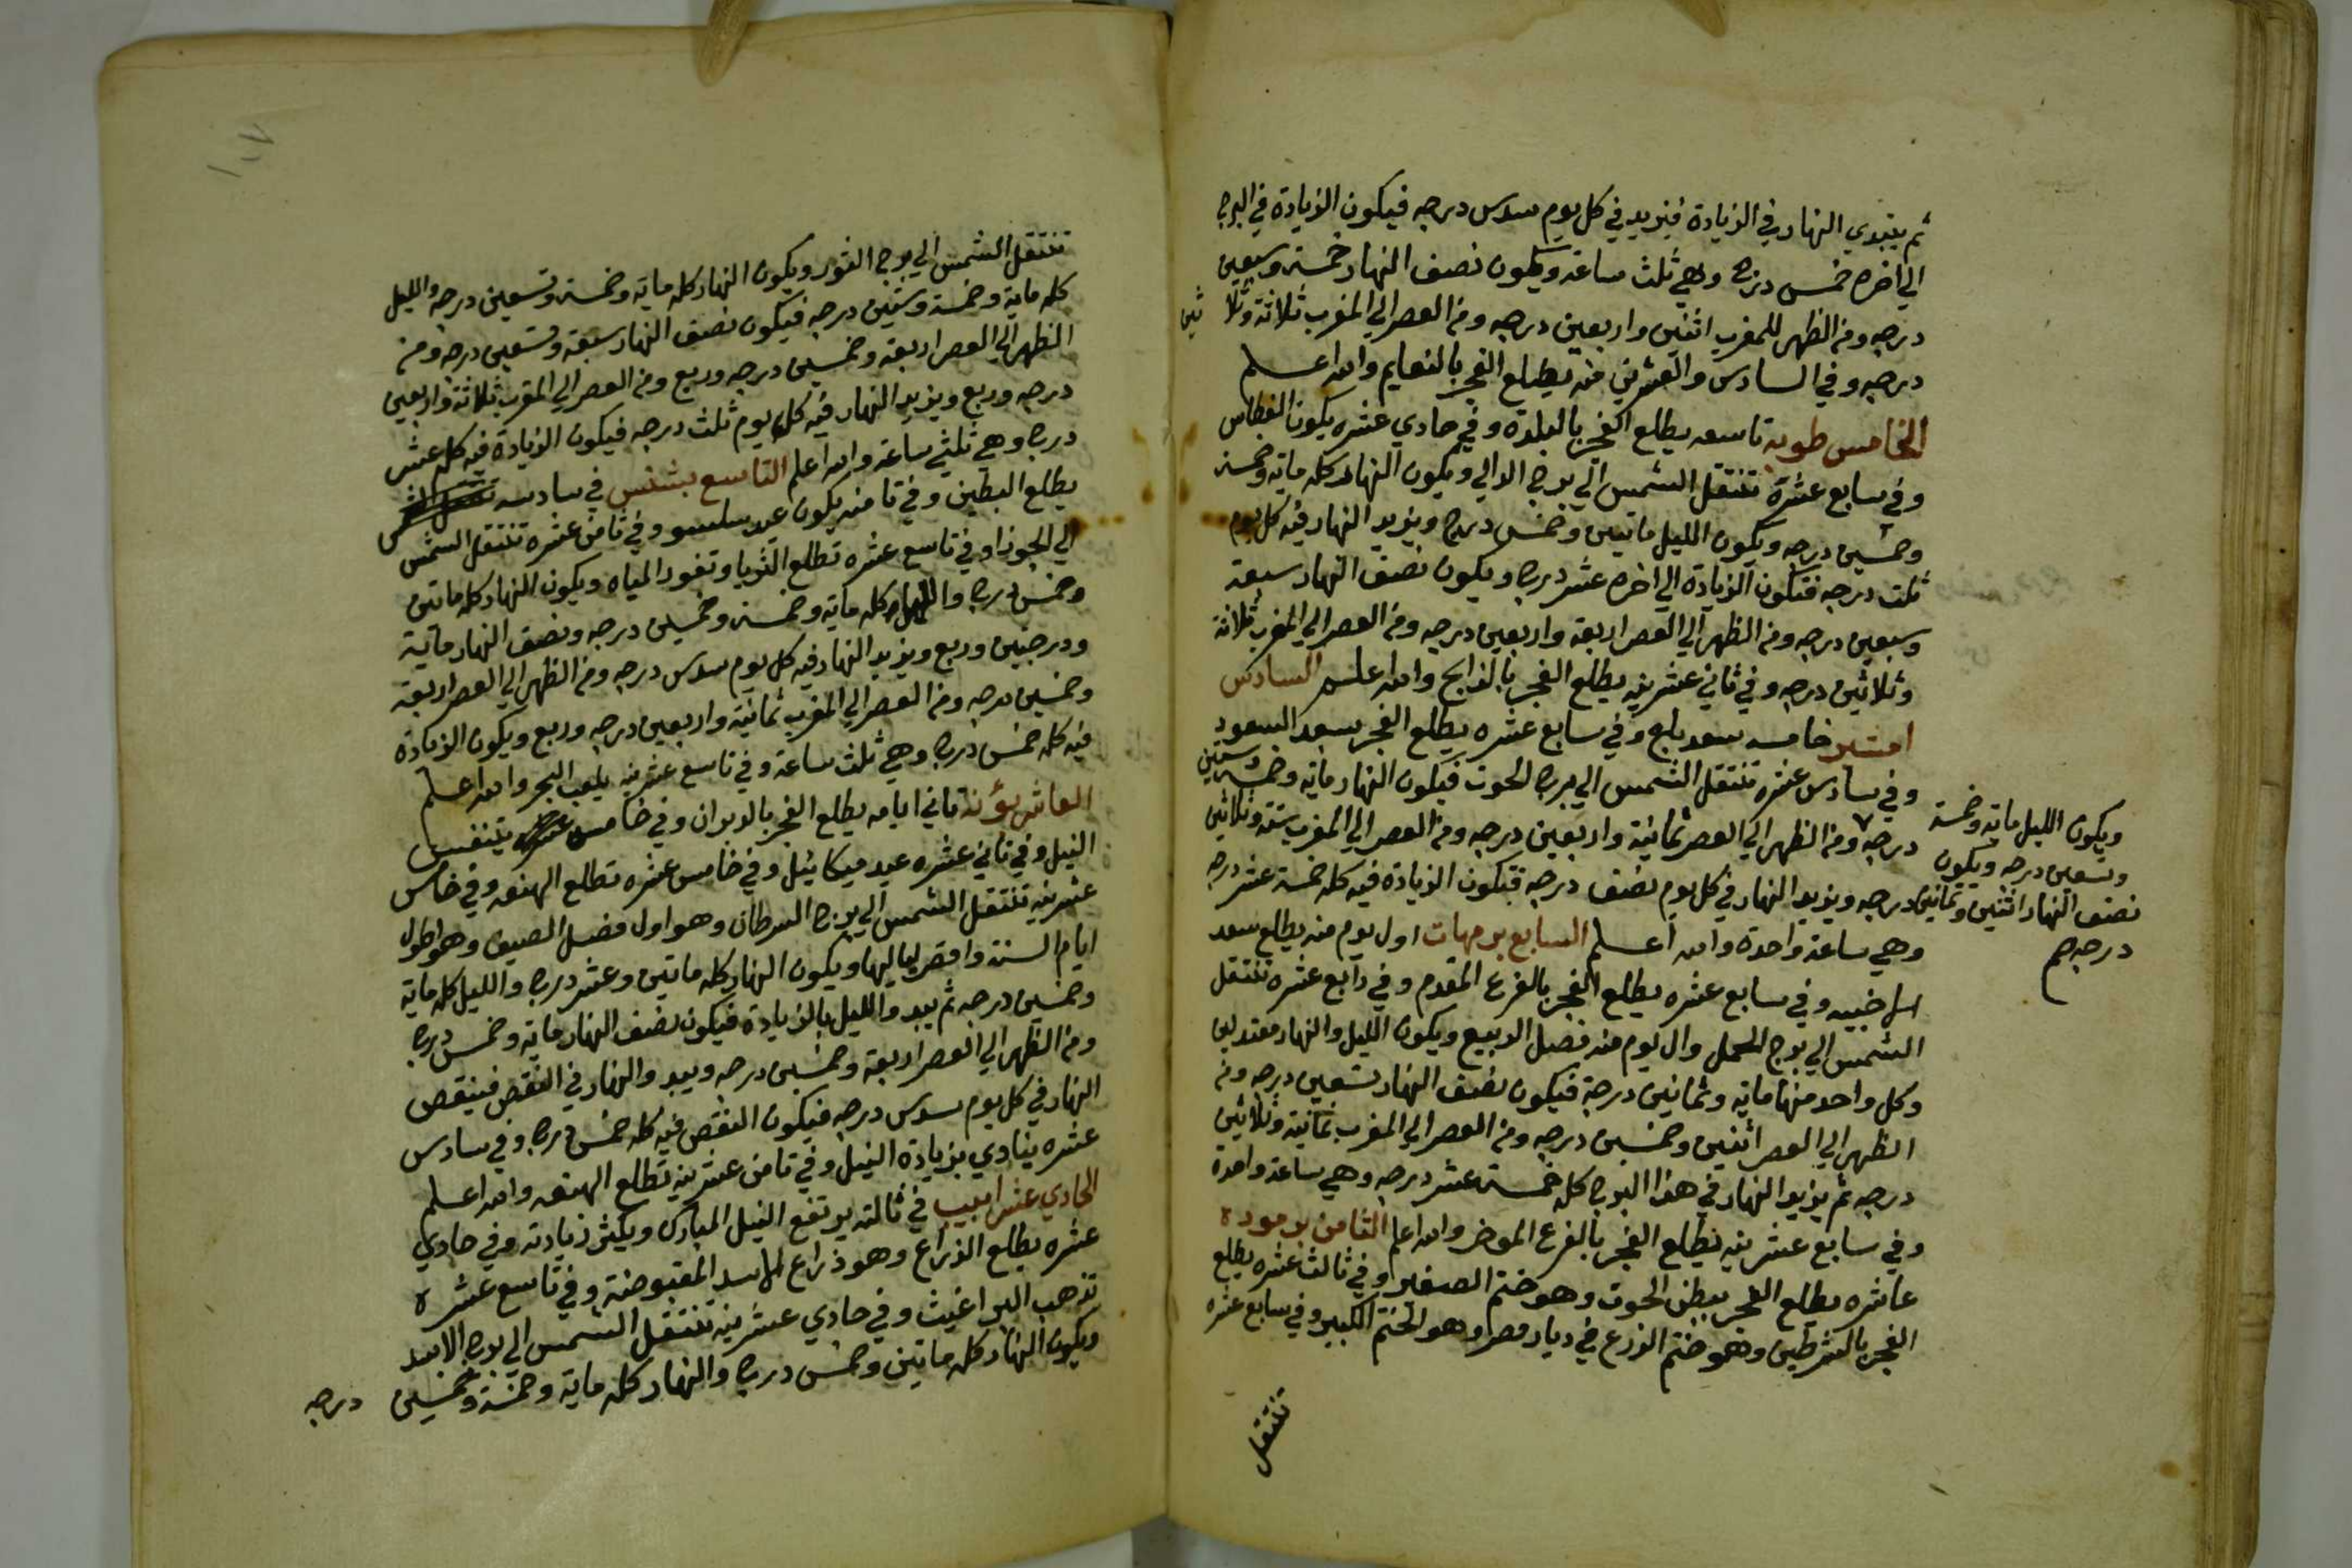 ثم يبتدي النهار في الزيادة فيزيد في كل يوم سدس درجه فيكون الزيادة في البرج
الي اخره خمس درج وهي ثلث ساعة ويكون نصف النهار خمسة وسبعين
درجه ومن الظهر للمغرب اثنين واربعين درجه ومن العصر الي المغرب ثلاثة وثلا ثين
درجه وفي السادس والعشرين منه يطلع الفجر بالنعايم والله اعلم
الخامس طوبه تاسعه يطلع الفجر بالبلدة وفي حادي عشره يكون الغطاس
وفي سابع عشرة تنتقل الشمس الي برج الدالي ويكون النهار كله ماية وخمسة
وخمسين درجه ويكون الليل مايتين وخمس درج ويزيد النهار فيه كل يوم
ثلث درجه فتكون الزيادة الي اخره عشر درج ويكون نصف النهار سبعة
وسبعين درجه ومن الظهر الي العصر اربعة واربعين درجه ومن العصر الي المغرب ثلاثة
وثلاثين درجه وفي ثاني عشرينه يطلع الفجر بالذابح والله اعلم السادس
امشير خامسه سعد بلع وفي سابع عشره يطلع الفجر بسعد السعود
وفي سادس عشره تنتقل الشمس الي برج الحوت فيكون النهار ماية وخمسة وستين
درجه ومن الظهر الي العصر ثمانية واربعين درجه ومن العصر الي المغرب ستة وثلاثين
درجه ويزيد النهار في كل يوم نصف درجه فتكون الزيادة فيه كله خمسة عشر درجه
وهي ساعة واحدة والله اعلم السابع برمهات اول يوم منه يطلع سعد
الاخبيه وفي سابع عشره يطلع الفجر بالفرع المقدم وفي رابع عشره تنتقل
الشمس الي برج الحمل وال يوم منه فصل الربيع ويكون الليل والنهار معتدلين
وكل واحد منها ماية وثمانين درجة فيكون نصف النهار تسعين درجه ومن
الظهر الي العصر اثنين وخمسين درجه ومن العصر الي المغرب ثمانية وثلاثين
درجه ثم يزيد النهار في هذا البرج كله خمسة عشر درجه وهي ساعة واحدة
وفي سابع عشرينه يطلع الفجر بالفرع الموخر والله اعلم الثامن برموده
عاشره يطلع الفجر ببطن الحوت وهو ختم الصغير وفي ثالث عشره يطلع
الفجر بالشرطين وهو ختم الزرع في ديار مصر وهو الختم الكبير وفي سابع عشره
تنتقل
ويكون الليل ماية وخمسة
وتسعين درجه ويكون
نصف النهار اثنين وثمانين
درجه صح
تنتقل الشمس الي برج الثور ويكون النهار كله ماية وخمسة وتسعين درجه والليل
كله ماية وخمسة وستين درجه فيكون نصف النهار سبعة وتسعين درجه ومن
الظهر الي العصر اربعة وخمسين درجه وربع ومن العصر الي المغرب ثلاثة واربعين
درجه وربع ويزيد النهار فيه كل يوم ثلث درجه فيكون الزيادة فيه كله عشر
درج وهي ثلثي ساعة والله اعلم التاسع بشنس في سادسه
يطلع البطين وفي ثامنه يكون عيد وفي ثامن عشره تنتقل الشمس
الي الجوزا وفي تاسع عشره تطلع الثريا وتغور المياه ويكون النهار كله مايتين
وخمس درج والليل كله ماية وخمسة وخمسين درجه ونصف النهار ماية
ودرجتين وربع ويزيد النهار فيه كل يوم سدس درجه ومن الظهر الي العصر اربعة
وخمسين درجه ومن العصر الي المغرب ثمانية واربعين درجه وربع ويكون الزيادة
فيه كله خمس درج وهي ثلث ساعة وفي تاسع عشرينه يلعب البحر والله اعلم
العاشر بؤنة ثاني ايامه يطلع الفجر بالدبران وفي خامس عشره يتنفس
النيل وفي ثاني عشره عيد ميكائيل وفي خامس عشره تطلع الهقعه وفي خامس
عشرينه تنتقل الشمس الي برج السرطان وهو اول فصل الصيف وهو اطول
ايام السنة واقصر لياليها ويكون النهار كله مايتين وعشر درج والليل كله ماية
وخمسين درجه ثم يبدو الليل بالزيادة فيكون نصف النهار ماية وخمس درج
ومن الظهر الي العصر اربعة وخمسين درجه ويبدو النهار في النقص فينقص
النهار في كل يوم سدس درجه فيكون النقص فيه كله خمس درج وفي سادس
عشره ينادي بزيادة النيل وفي ثامن عشرينه تطلع الهنعه والله اعلم
الحادي عشر ابيب في ثالثه يرتفع النيل المبارك ويكثر زيادته وفي حادي
عشره يطلع الذراع وهو ذراع الاسد المقبوضة وفي تاسع عشره
تذهب البراغيث وفي حادي عشرينه تنتقل الشمس الي برج الاسد
ويكون النهار كله مايتين وخمس درج والنهار كله ماية وخمسة وخمسين درجه